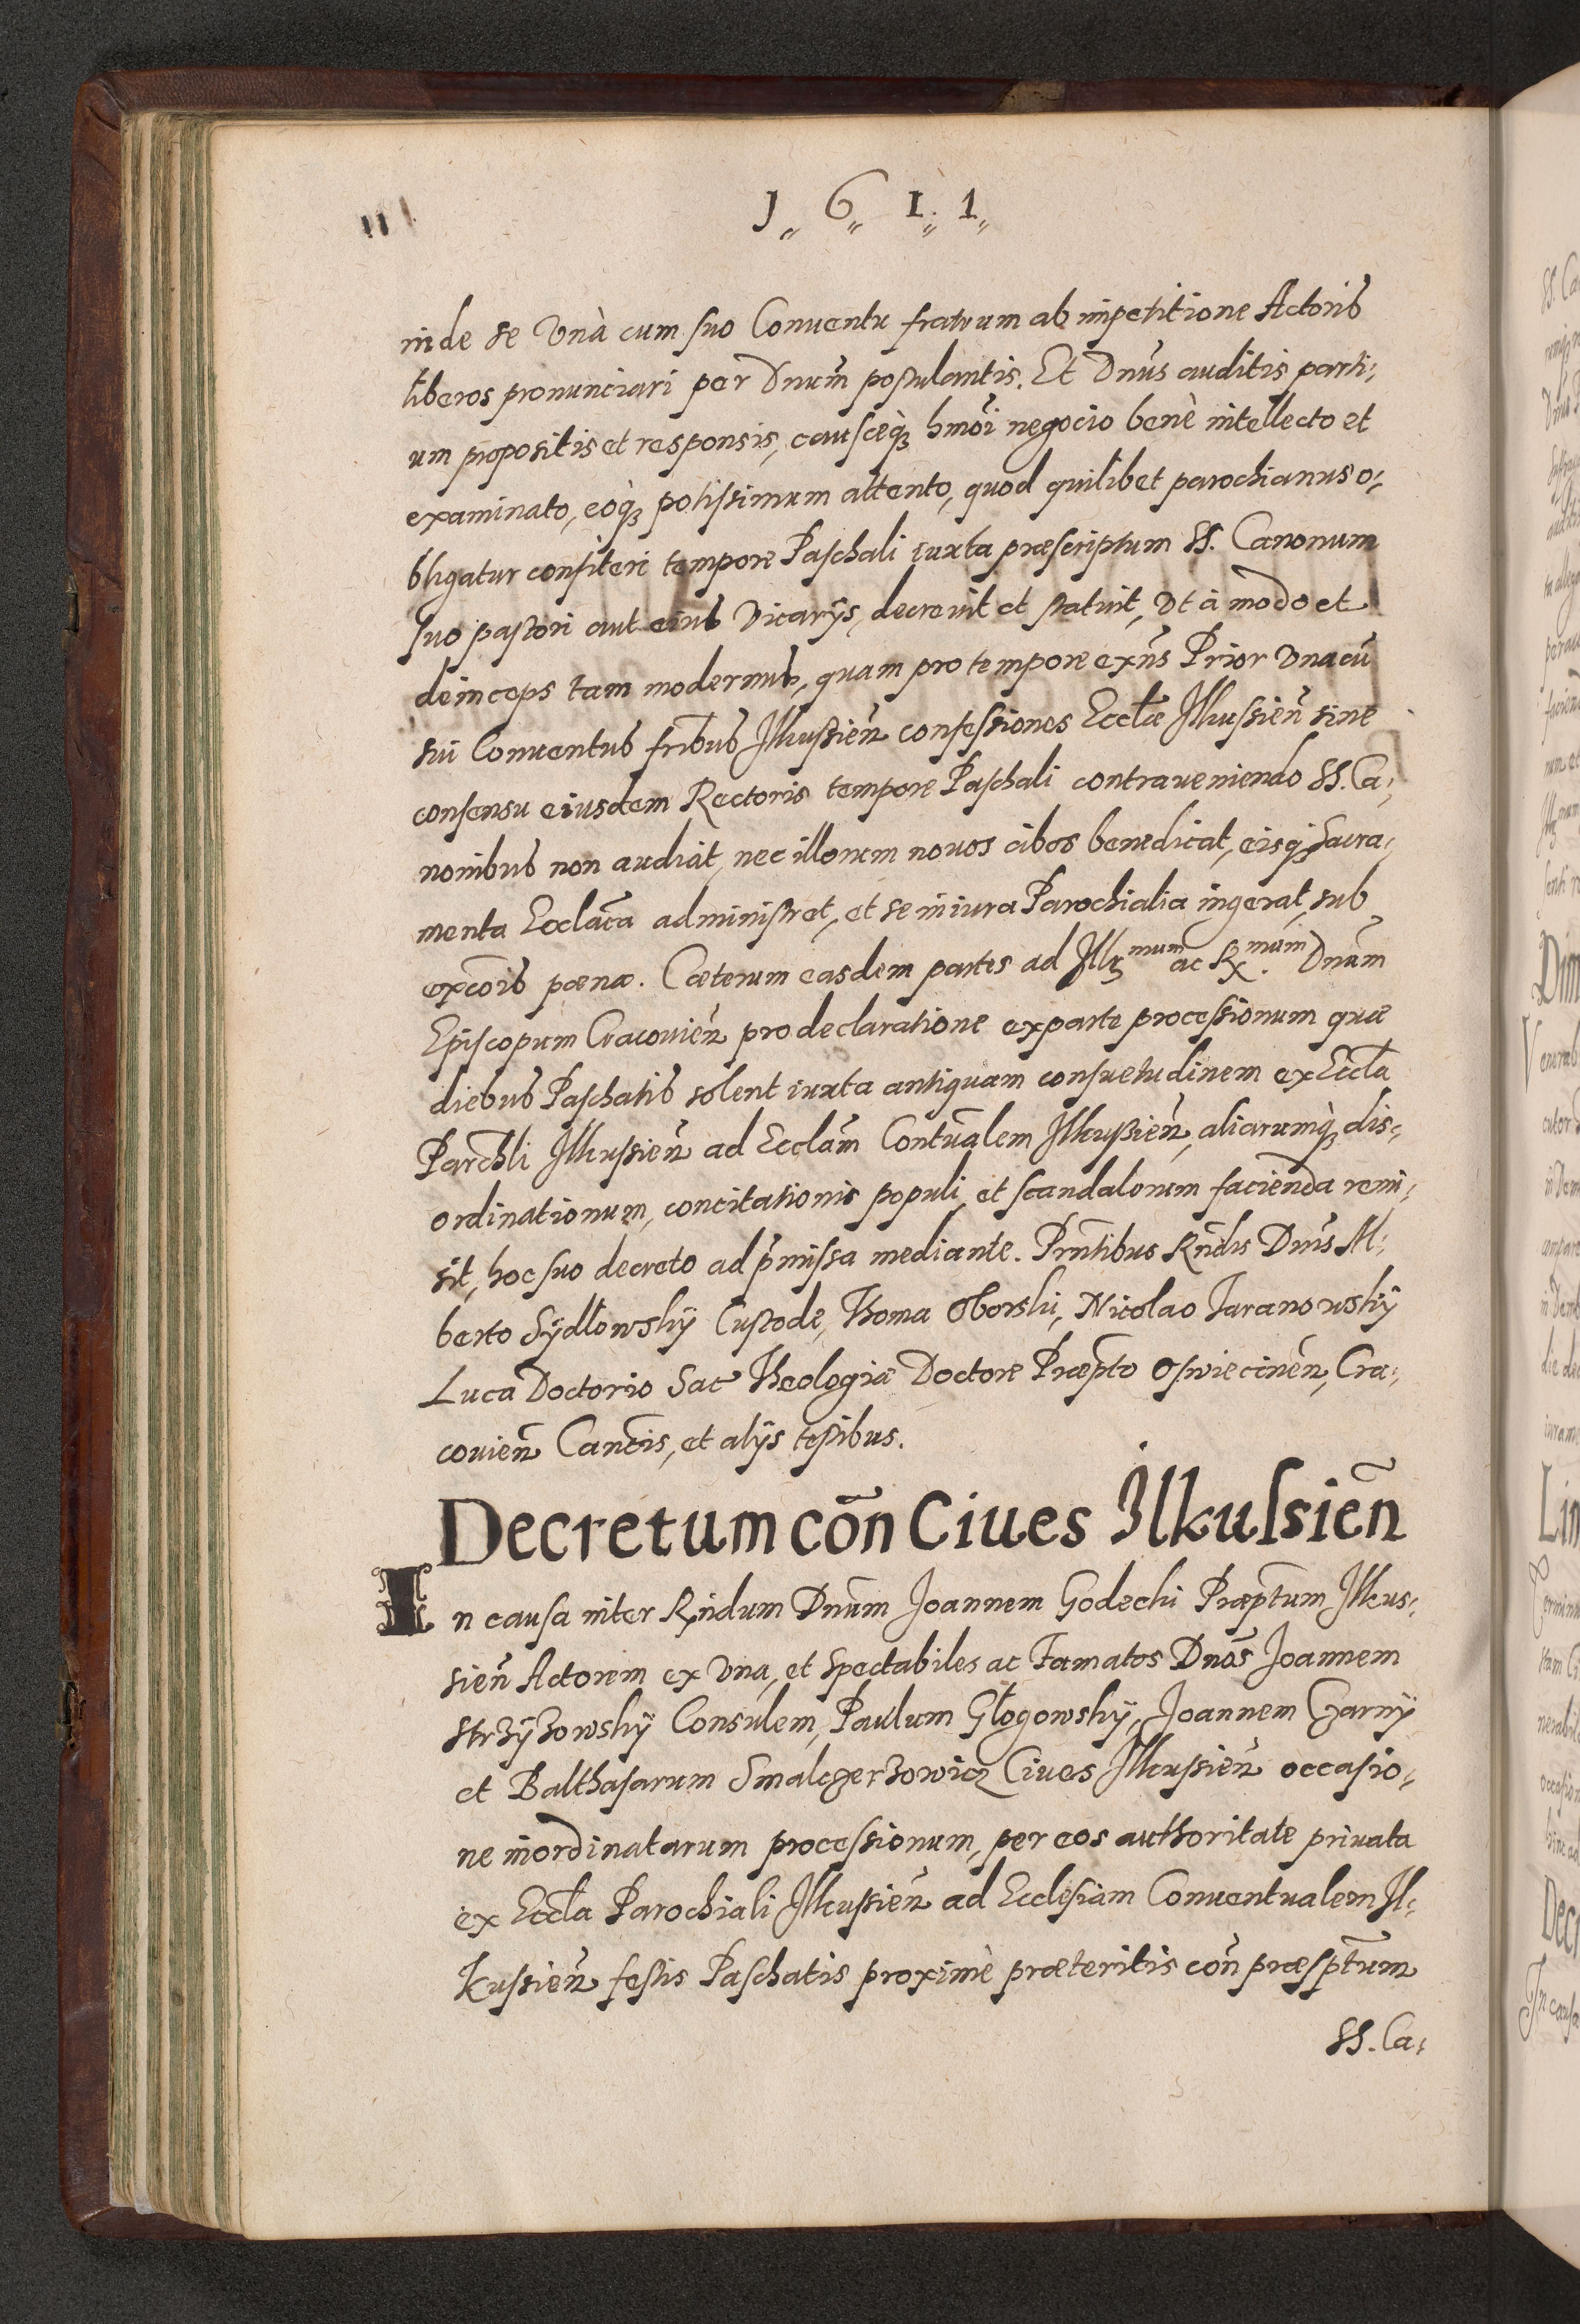 1 6 1 1
inde se vnà cum suo Conuentu fratrum ab impetitione Actoris
liberos pronunciari per Dnum̃ postulantis. Et Dnũs auditis parti,
um propositis et responsis, causæq̀ꝫ hmõi negocio benè intellecto et
examinato, eoq̀ꝫ potissimum attento, quod quilibet parochianus o,
bligatur confiteri tempore Paschali iuxta præscriptum SS. Canonum
suo pastori aut eius Vicarÿs, decreuit et statuit, vt à modo et
deinceps tam modernus, quam pro tempore exñs Prior vna cũ
sui Conuentus fribũs Illkussieñ confessiones Ecclæ̃ Illkussieñ sine
consensu eiusdem Rectoris tempore Paschali contraueniendo SS. Ca,
nonibus non audiat, nec illorum nouos cibos benedicat, eisqꝫ Sacra,
menta Ecclãca administret, et se in iura Parochialia ingerat, sub
excõis pœna. Cæterum easdem partes ad Illꝫmum ac Rx.mum Dnum̃
Episcopum Cracouieñ pro declaratione ex parte processionum quæ
diebus Paschatis solent iuxta antiquam consuetudinem ex Eccla̅
Parchl̃i Ilkussieñ ad Ecclãm Contuãlem Ilkussieñ, aliarumq̀ꝫ dis,
ordinationum, concitationis populi, et scandalorum facienda remi,
sit, hoc suo decreto ad p̃missa mediante. Prñtibus Rndĩs Dnĩs Al,
berto Sÿdłowskÿ Custode, Thoma Oborski, Nicolao Iaranowskÿ
Luca Doctorio Sac Theologiæ Doctore Præpt̃o Oswiecineñ, Cra,
couieñ Canc̃is, et alÿs testibus.
Decretum cõn Ciues Ilkussieñ
In causa inter Rñdum Dnũm Joannem Godecki Præpt̃um Ilkus,
sieñ Actorem ex vna, et spectabiles ac Famatos Dnõs Joannem
Strzÿzowskÿ Consulem, Paulum Głogowskÿ, Joannem Czarnÿ
et Balthasarum Smalczerzowicz Ciues Ilkussieñ occasio,
ne inordinatarum processionum, per eos authoritate priuata
ex Eccla̅ Parochiali Ilkussieñ ad Ecclesiam Conuentualem Il,
kussieñ festis Paschatis proximè præteritis cõn præspt̃um
SS. Ca,